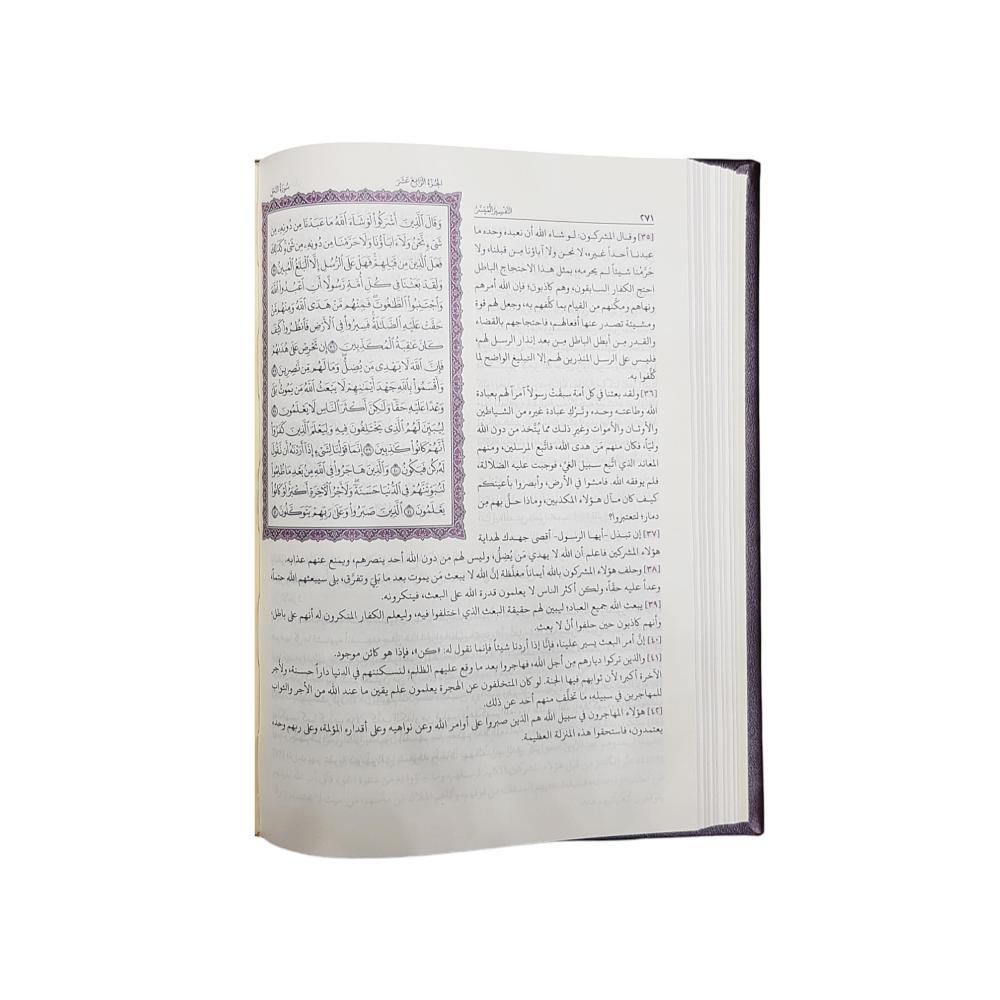 ٢٧١
التفسير الميسر
الجزء الرابع عشر
سورة النحل
وَقَالَ ٱلَّذِينَ أَشْرَكُوا۟ لَوْ شَآءَ ٱللَّهُ مَا عَبَدْنَا مِن دُونِهِۦ مِن
شَىْءٍ نَّحْنُ وَلَآ ءَابَآؤُنَا وَلَا حَرَّمْنَا مِن دُونِهِۦ مِن شَىْءٍ كَذَٰلِكَ
فَعَلَ ٱلَّذِينَ مِن قَبْلِهِمْ فَهَلْ عَلَى ٱلرُّسُلِ إِلَّا ٱلْبَلَٰغُ ٱلْمُبِينُ ٣٥
وَلَقَدْ بَعَثْنَا فِى كُلِّ أُمَّةٍ رَّسُولًا أَنِ ٱعْبُدُوا۟ ٱللَّهَ
وَٱجْتَنِبُوا۟ ٱلطَّٰغُوتَ فَمِنْهُم مَّنْ هَدَى ٱللَّهُ وَمِنْهُم مَّنْ
حَقَّتْ عَلَيْهِ ٱلضَّلَٰلَةُ فَسِيرُوا۟ فِى ٱلْأَرْضِ فَٱنظُرُوا۟ كَيْفَ
كَانَ عَٰقِبَةُ ٱلْمُكَذِّبِينَ ٣٦ إِن تَحْرِصْ عَلَىٰ هُدَىٰهُمْ
فَإِنَّ ٱللَّهَ لَا يَهْدِى مَن يُضِلُّ وَمَا لَهُم مِّن نَّٰصِرِينَ ٣٧
وَأَقْسَمُوا۟ بِٱللَّهِ جَهْدَ أَيْمَٰنِهِمْ لَا يَبْعَثُ ٱللَّهُ مَن يَمُوتُ بَلَىٰ
وَعْدًا عَلَيْهِ حَقًّا وَلَٰكِنَّ أَكْثَرَ ٱلنَّاسِ لَا يَعْلَمُونَ ٣٨
لِيُبَيِّنَ لَهُمُ ٱلَّذِى يَخْتَلِفُونَ فِيهِ وَلِيَعْلَمَ ٱلَّذِينَ كَفَرُوٓا۟
أَنَّهُمْ كَانُوا۟ كَٰذِبِينَ ٣٩ إِنَّمَا قَوْلُنَا لِشَىْءٍ إِذَآ أَرَدْنَٰهُ أَن نَّقُولَ
لَهُۥ كُن فَيَكُونُ ٤٠ وَٱلَّذِينَ هَاجَرُوا۟ فِى ٱللَّهِ مِنۢ بَعْدِ مَا ظُلِمُوا۟
لَنُبَوِّئَنَّهُمْ فِى ٱلدُّنْيَا حَسَنَةً وَلَأَجْرُ ٱلْءَاخِرَةِ أَكْبَرُ لَوْ كَانُوا۟
يَعْلَمُونَ ٤١ ٱلَّذِينَ صَبَرُوا۟ وَعَلَىٰ رَبِّهِمْ يَتَوَكَّلُونَ ٤٢
[٣٥] وقال المشركون: لو شاء الله أن نعبده وحده ما
عبدنا أحداً غيره، لا نحن ولا آباؤنا مِن قبلنا، ولا
حَرَّمْنا شيئاً لم يحرمه، بمثل هذا الاحتجاج الباطل
احتج الكفار السابقون، وهم كاذبون؛ فإن الله أمرهم
ونهاهم ومكَّنهم من القيام بما كلَّفهم به، وجعل لهم قوة
ومشيئة تصدر عنها أفعالهم، فاحتجاجهم بالقضاء
والقدر من أبطل الباطل مِن بعد إنذار الرسل لهم،
فليس على الرسل المنذرين لهم إلا التبليغ الواضح لما
كُلِّفوا به.
[٣٦] ولقد بعثنا في كل أمة سبقتْ رسولاً آمراً لهم بعبادة
الله وطاعته وحده وتَرْكِ عبادة غيره من الشياطين
والأوثان والأموات وغير ذلك مما يُتَّخذ من دون الله
وليّاً، فكان منهم مَن هدى الله، فاتَّبع المرسلين، ومنهم
المعاند الذي اتَّبع سبيل الغيِّ، فوجبت عليه الضلالة،
فلم يوفقه الله. فامشوا في الأرض، وأبصروا بأعينكم
كيف كان مآل هؤلاء المكذبين، وماذا حلَّ بهم مِن
دمار؛ لتعتبروا؟
[٣٧] إن تبذل -أيها الرسول- أقصى جهدك لهداية
هؤلاء المشركين فاعلم أن الله لا يهدي مَن يُضِلُّ، وليس لهم من دون الله أحد ينصرهم، ويمنع عنهم عذابه.
[٣٨] وحلف هؤلاء المشركون بالله أيماناً مغلَّظة إنَّ الله لا يبعث مَن يموت بعد ما بَلِيَ وتفرَّق، بلى سيبعثهم الله حتماً،
وعداً عليه حقّاً، ولكن أكثر الناس لا يعلمون قدرة الله على البعث، فينكرونه.
[٣٩] يبعث الله جميع العباد؛ ليبين لهم حقيقة البعث الذي اختلفوا فيه، وليعلم الكفار المنكرون له أنهم على باطل،
وأنهم كاذبون حين حلفوا أنْ لا بعث.
[٤٠] إنَّ أمر البعث يسير علينا، فإنَّا إذا أردنا شيئاً فإنما نقول له: «كن»، فإذا هو كائن موجود.
[٤١] والذين تركوا ديارهم مِن أجل الله، فهاجروا بعد ما وقع عليهم الظلم، لنسكننهم في الدنيا داراً حسنة، ولأجر
الآخرة أكبر؛ لأن ثوابهم فيها الجنة. لو كان المتخلفون عن الهجرة يعلمون علم يقين ما عند الله من الأجر والثواب
للمهاجرين في سبيله، ما تخلَّف منهم أحد عن ذلك.
[٤٢] هؤلاء المهاجرون في سبيل الله هم الذين صبروا على أوامر الله وعن نواهيه وعلى أقداره المؤلمة، وعلى ربهم وحده
يعتمدون، فاستحقوا هذه المنزلة العظيمة.